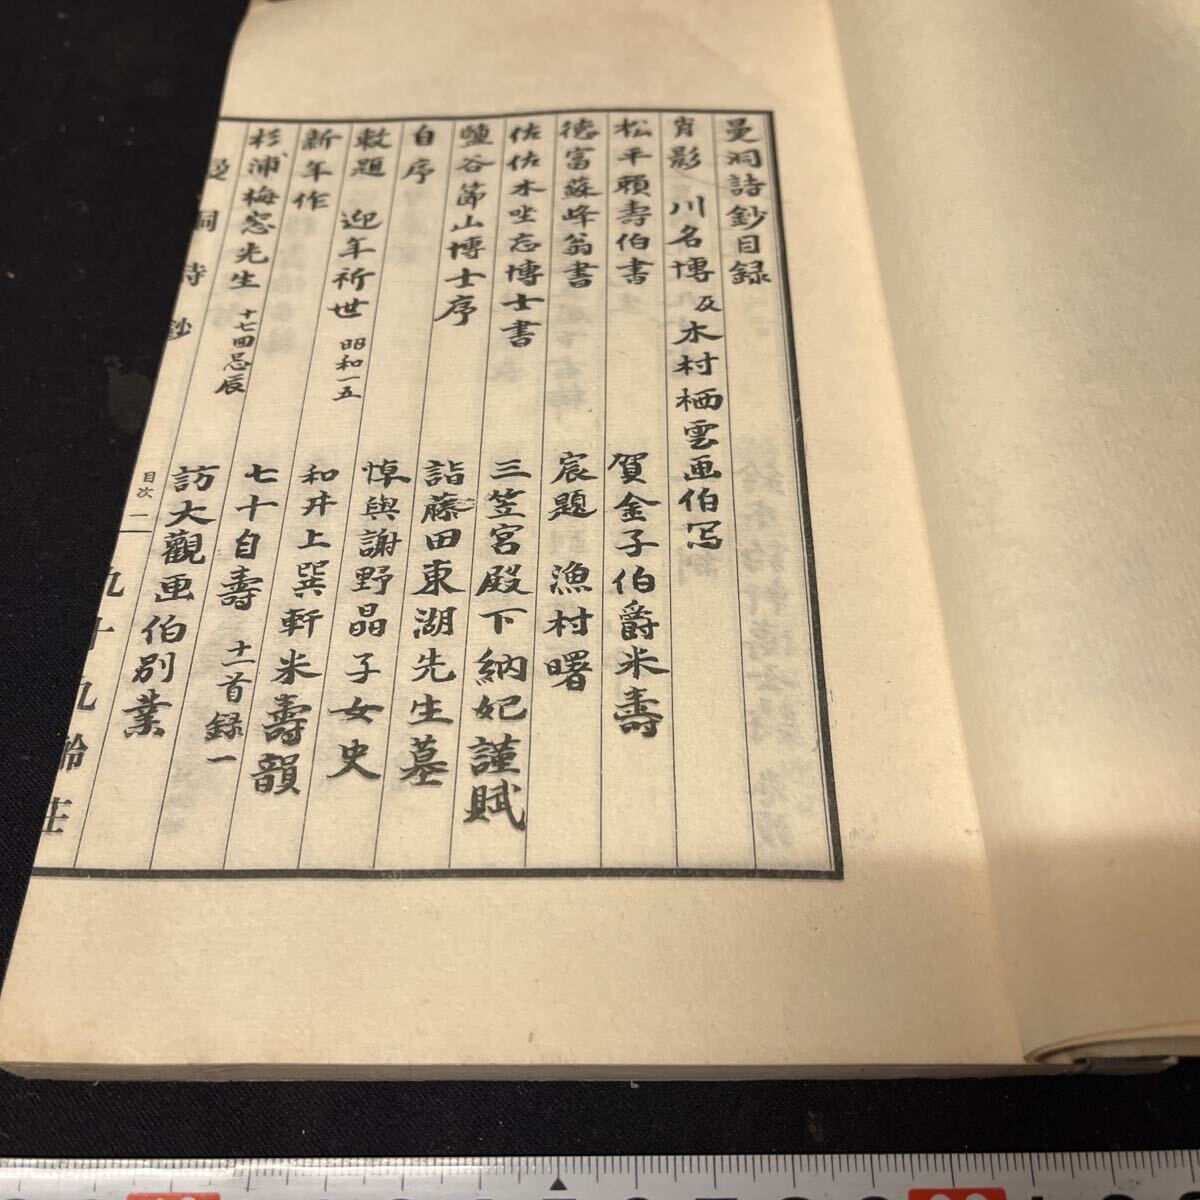 曼洞詩鈔目録
肖影 川名博 及 木村栖雲画伯写
松平頼壽伯書
賀金子伯爵米壽
德富蘇峰翁書
宸題 漁村曙
佐佐木㘴忘博士書
三笠宮殿下納妃謹賦
鹽谷節山博士序
詣藤田東湖先生墓
自序
悼與謝野晶子女史
敕題 迎年祈世 昭和一五
和井上巽軒米壽韻
新年作
七十自壽 十一首録一
杉浦梅窓先生 十七回忌辰
訪大觀画伯別業
曼洞詩鈔
目次 一
九十九